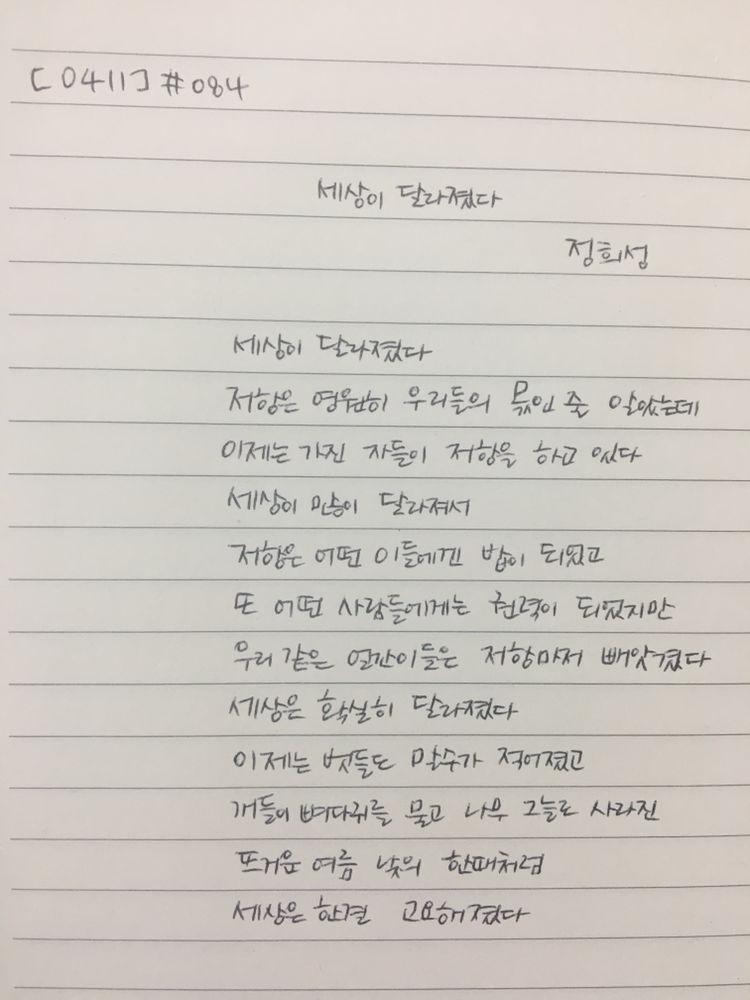 [0411] #084
세상이 달라졌다
정희성
세상이 달라졌다
저항은 영원히 우리들의 몫인 줄 알았는데
이제는 가진 자들이 저항을 하고 있다
세상이 많이 달라져서
저항은 어떤 이들에겐 밥이 되었고
또 어떤 사람들에게는 권력이 되었지만
우리 같은 얼간이들은 저항마저 빼앗겼다
세상은 확실히 달라졌다
이제는 벗들도 말수가 적어졌고
개들이 뼈다귀를 물고 나무 그늘로 사라진
뜨거운 여름 낮의 한때처럼
세상은 한결 고요해졌다